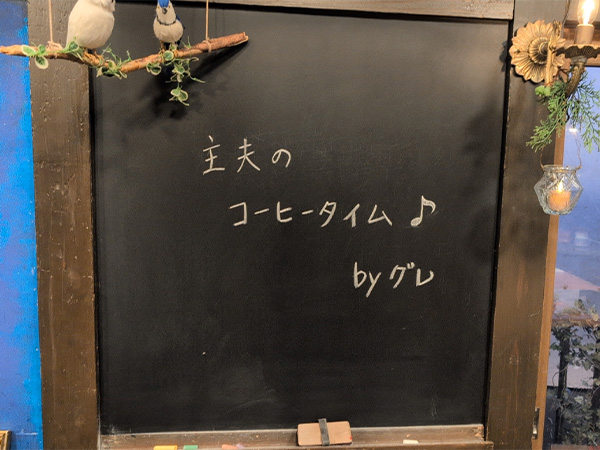 主夫の
コーヒータイム♪
byグレ